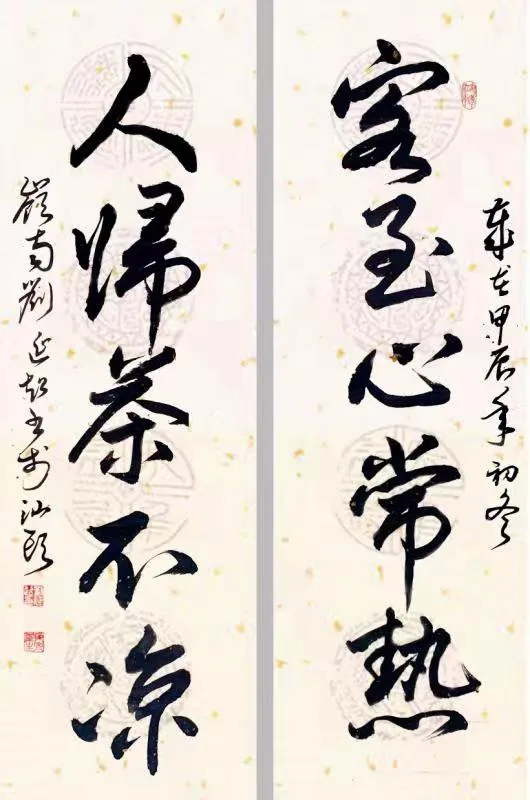 歲在甲辰年初冬
客至心常熱
人帰茶不凉
嶺南劉延超書於汕頭